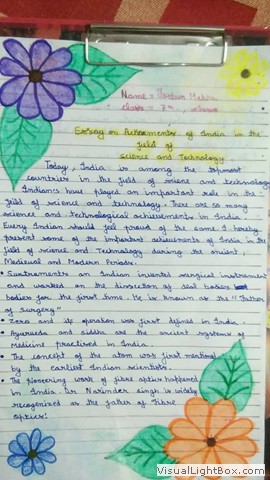 Name = Mehra
class = 7th
Essay on Achievements of India in the
field of
science and Technology
Today, India is among the topmost
countries in the field of science and technology
Indians have played an important role in the
field of science and technology. There are so many
science and technological achievements in India.
Every Indian should feel proud of the same. I hereby
present some of the important achievements of India in the
field of science and Technology during the ancient,
Medieval and Modern Periods.
• an Indian invented surgical instruments
and worked on the dissection of dead bodies
bodies for the first time. He is known as the "Father
of surgery"
• Zero and its operation was first defined in India.
• Ayurveda and siddha are the ancient systems of
Medicine practised in India.
• The concept of the atom was first mentioned
by the earliest Indian scientists.
• The pioneering work of fibre optics happened
in India. Dr Narinder singh is widely
recognized as the father of Fibre
optics.
VisualLightBox.com